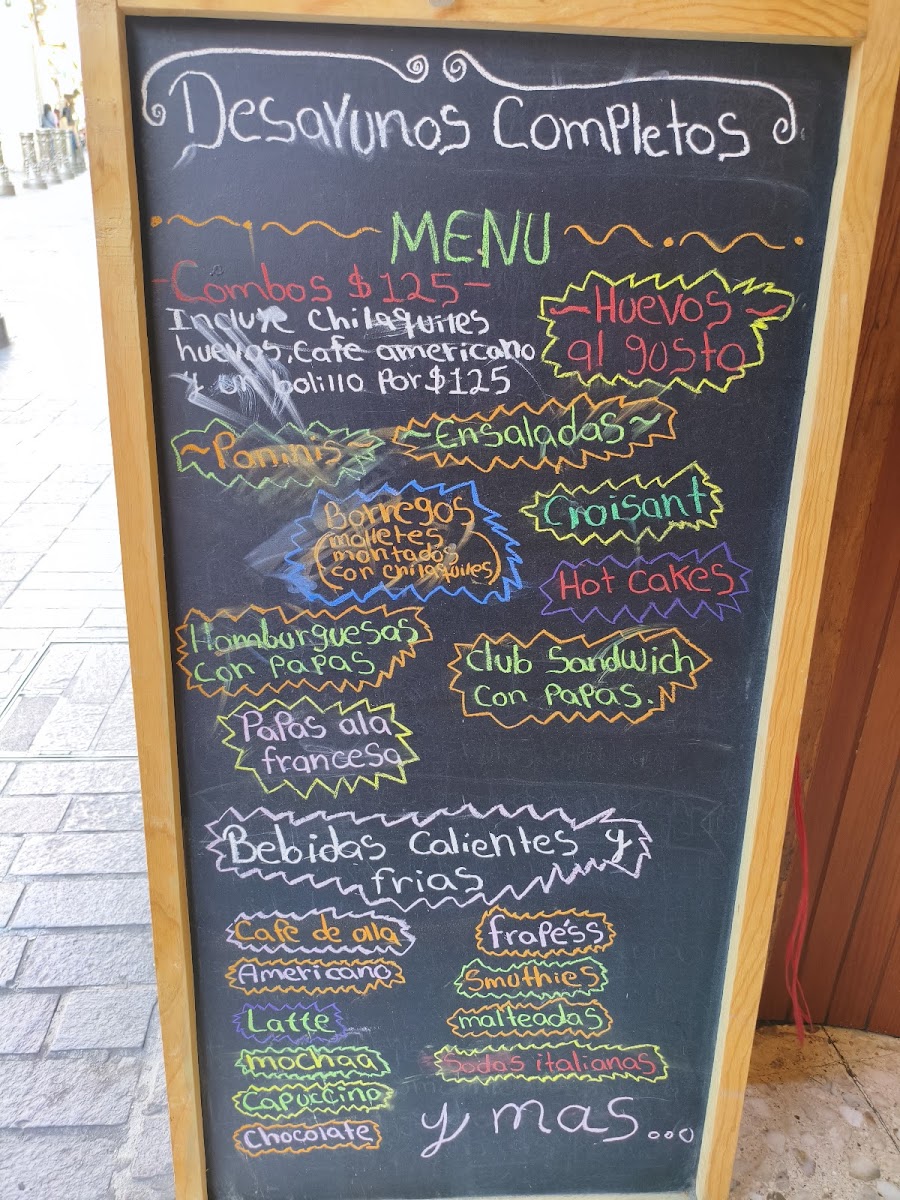 Desayunos Completos
MENU
-Combos $125-
Incluye Chilaquiles
huevos, Cafe americano
y un bolillo Por $125
~Huevos~
al gusto
~Paninis~
~Ensaladas~
Borregos
(molletes
montados
con chilaquiles)
Croisant
Hot cakes
Hamburguesas
con papas
Club Sandwich
con papas.
Papas ala
francesa
Bebidas Calientes y
frias
Cafe de olla
Americano
Latte
mochaa
Capuccino
Chocolate
frapéss
Smuthies
malteadas
Sodas italianas
y mas...